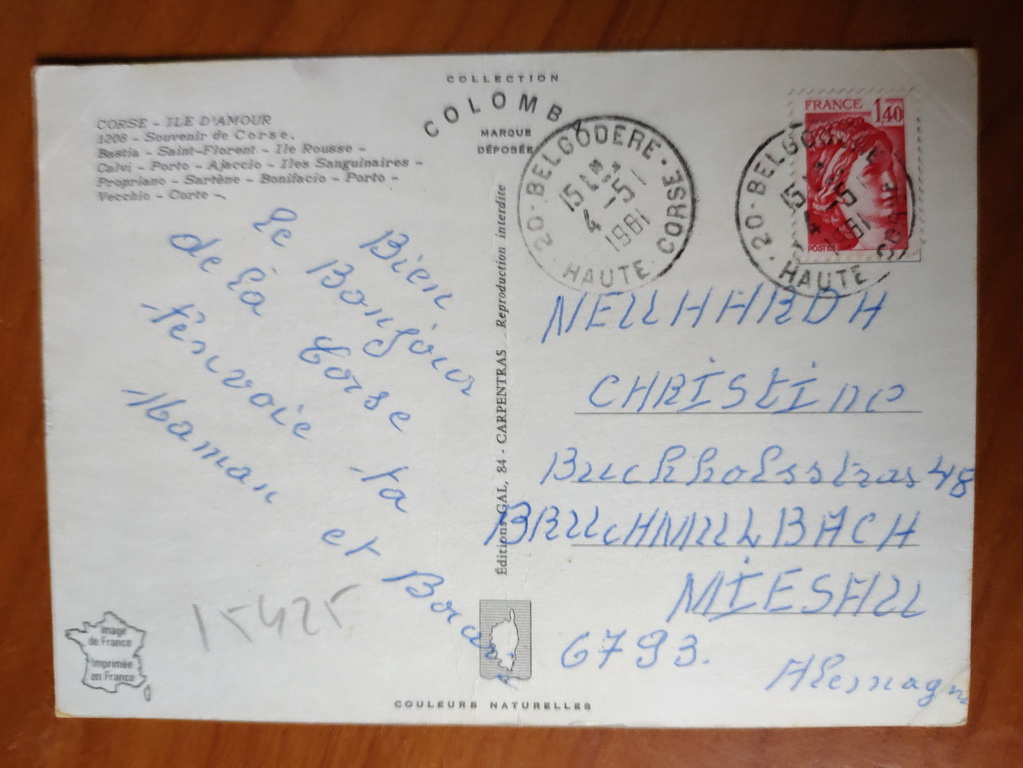 COLLECTION
COLOMBA
MARQUE
DÉPOSÉE
CORSE - ILE D'AMOUR
1208 - Souvenir de Corse.
Bastia - Saint-Florent - Ile Rousse -
Calvi - Porto - Ajaccio - Iles Sanguinaires -
Propriano - Sartène - Bonifacio - Porto -
Vecchio - Corte -.
Bien
le Bonjour
de la Corse
t'envoie ta
Maman et
15425
Image
de France
Imprimée
en France
Éditions GAL, 84 - CARPENTRAS Reproduction interdite
COULEURS NATURELLES
20 - BELGODERE - CORSE
15
5
4
1981
HAUTE
FRANCE
1,40
POSTES
20 - BELGODERE
15
5
4
1981
HAUTE CORSE
CHRISTINE
48
BRUCHMULLBACH
MIESAU
6793.
Alemagne